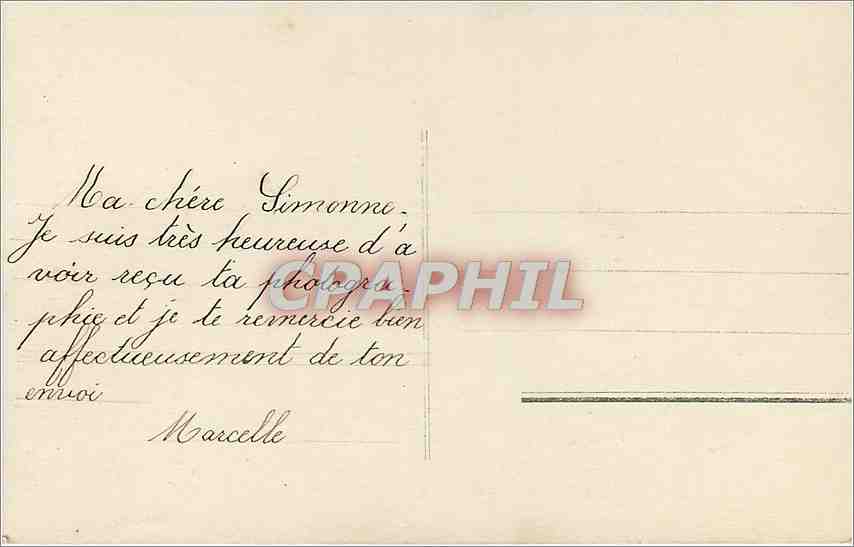 Ma chére Simonne.
Je suis très heureuse d'a
voir reçu ta photogra-
phie et je te remercie bien
affectueusement de ton
envoi
Marcelle
CPAPHIL